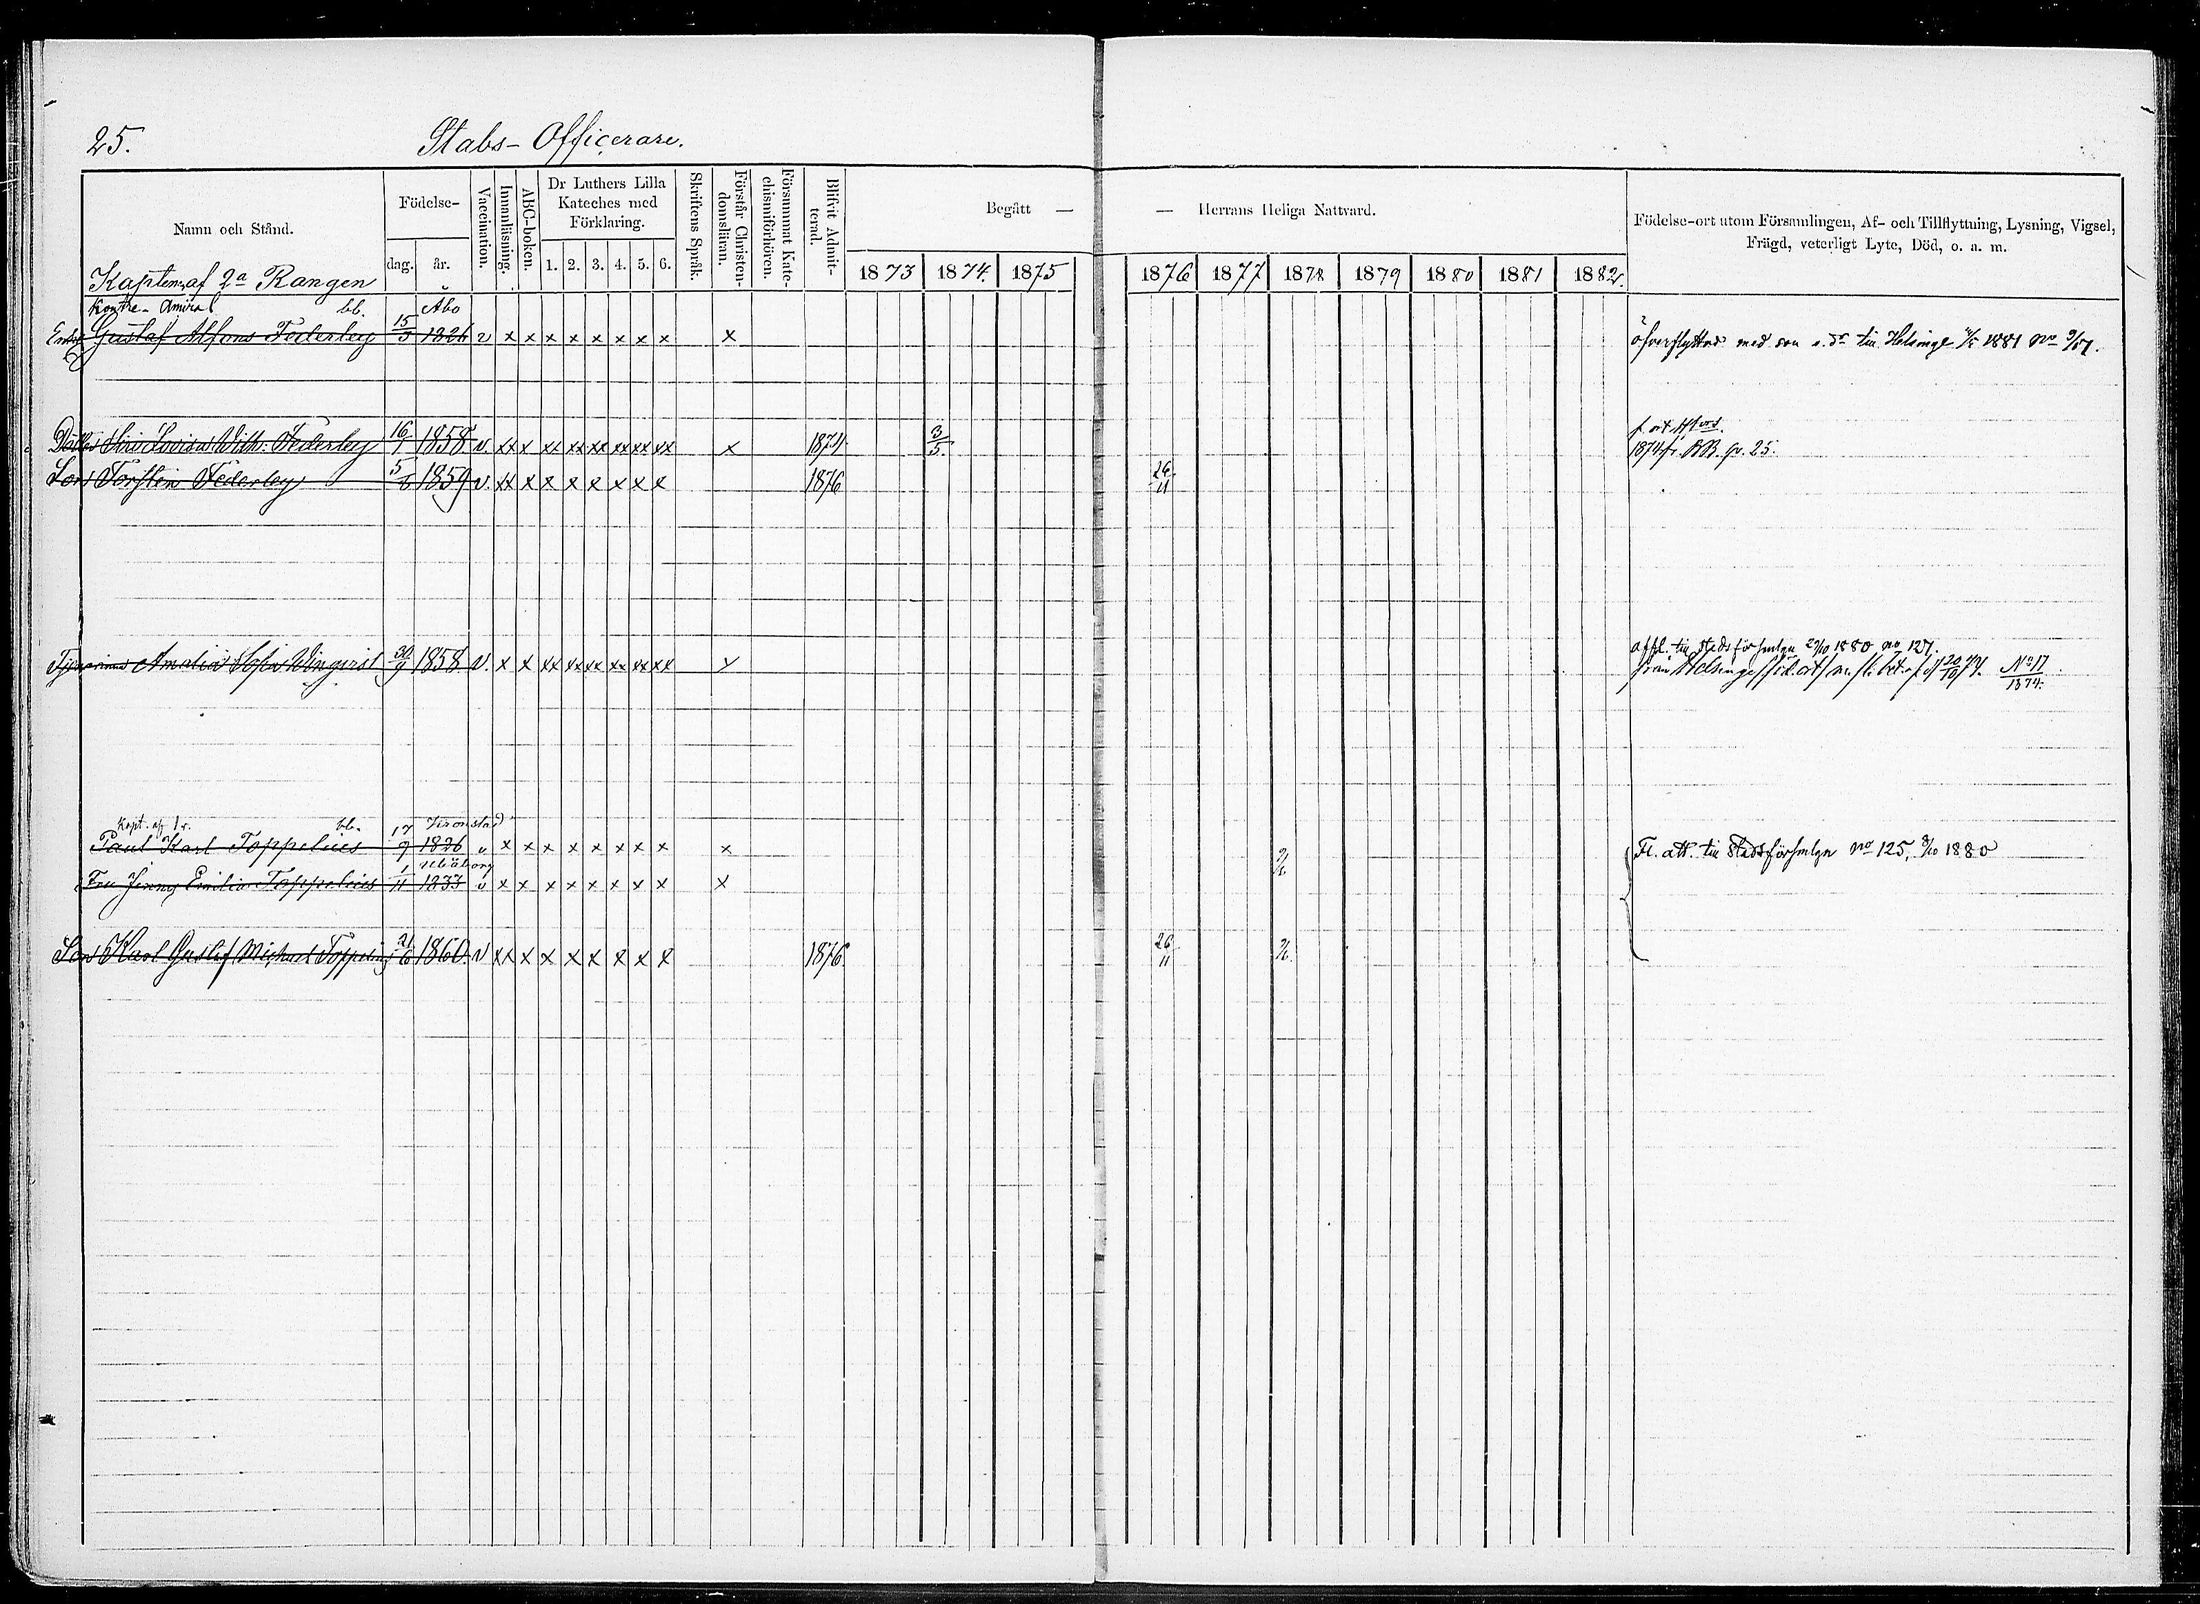 25. Stabs-Officerare.
Namn och Stånd. Födelse- dag. år. Vaccination. Innanläsning. ABC-boken. Dr Luthers Lilla Kateches med Förklaring. 1. 2. 3. 4. 5. 6. Skriftens Språk. Förstår Christendomsläran. Försummat Katechismiförhören. Blifvit Admitterad. Begått — — Herrans Heliga Nattvard. Födelse-ort utom Församlingen, Af- och Tillflyttning, Lysning, Vigsel, Frägd, veterligt Lyte, Död, o. a. m.
1873 1874. 1875 1876 1877 1878 1879 1880 1881 1882.
Kapten af 2a Rangen
Kontre-Amiral bb. Åbo
Enkl Gustaf Alfons Federley 15/3 1826 v x x x x x x x x x öfverflyttad med son o. dr till Helsinge 1881 No 9/51.
f. ort H:fors.
Dottr Siri Lovisa Wilh. Federley 16/1 1858 v. xx x xx xx xx xx xx xx x 1874 3/5 1874 fr. BB. p. 25.
Son Torsten Federley 5/6 1859 v. xx x x x x x x x 1876 26/11
affl. till Stadsförsmlgn 29/10 1880 no 127.
Tjenarinna Amalia Sofia Wingvist 30/9 1858 v. x x xx xx xx xx xx xx x från Helsinge 20/10 74. No 17/1874.
Kapt. af 1 r. bb. Kronstad
Paul Karl Toppelius 17/9 1826 v x x x x x x x x x Fl. att. till Stadsförsmlgn No 125, 8/10 1880
Uleåborg
Fru Jenny Emilia Toppelius 1/11 1833 v x x x x x x x x x
Son Karl Gustaf Michael Toppelius 21/6 1860. v xx x x x x x x x 1876. 26/11